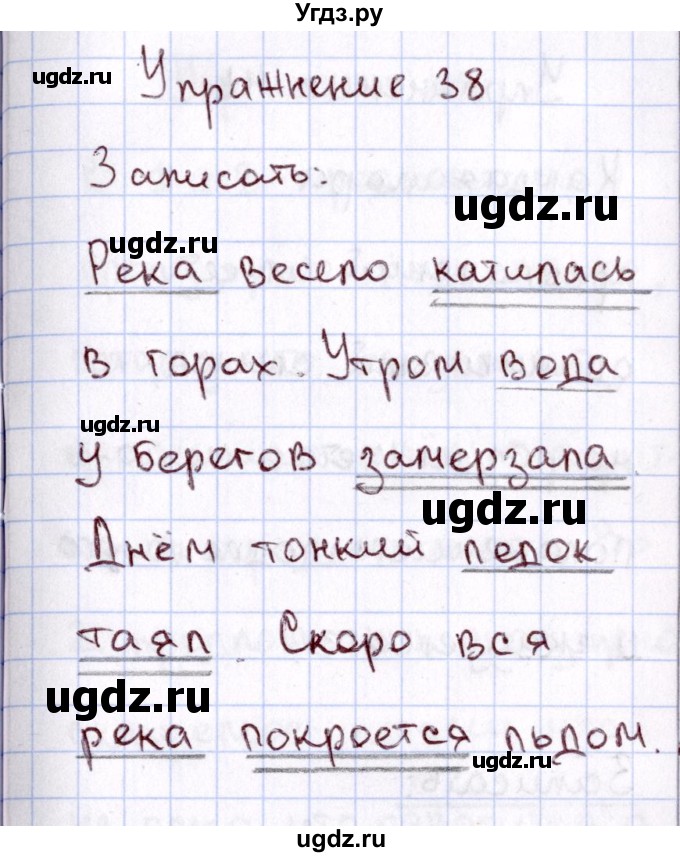 Угдз.ру
ugdz.ru
Упражнение 38
ugdz.ru
Записать:
ugdz.ru
ugdz.ru
Река весело катилась
в горах. Утром вода
ugdz.ru
у берегов замерзала.
ugdz.ru
Днём тонкий ледок
таял. Скоро вся
ugdz.ru
река покроется льдом.
ugdz.ru
ugdz.ru